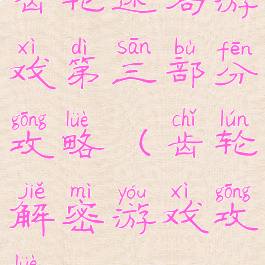 xì dì sān bù fēn
戏第三部分
gōng lüè chǐ lún
攻略（齿轮
jiě mì yóu xì gōng
解密游戏攻
lüè